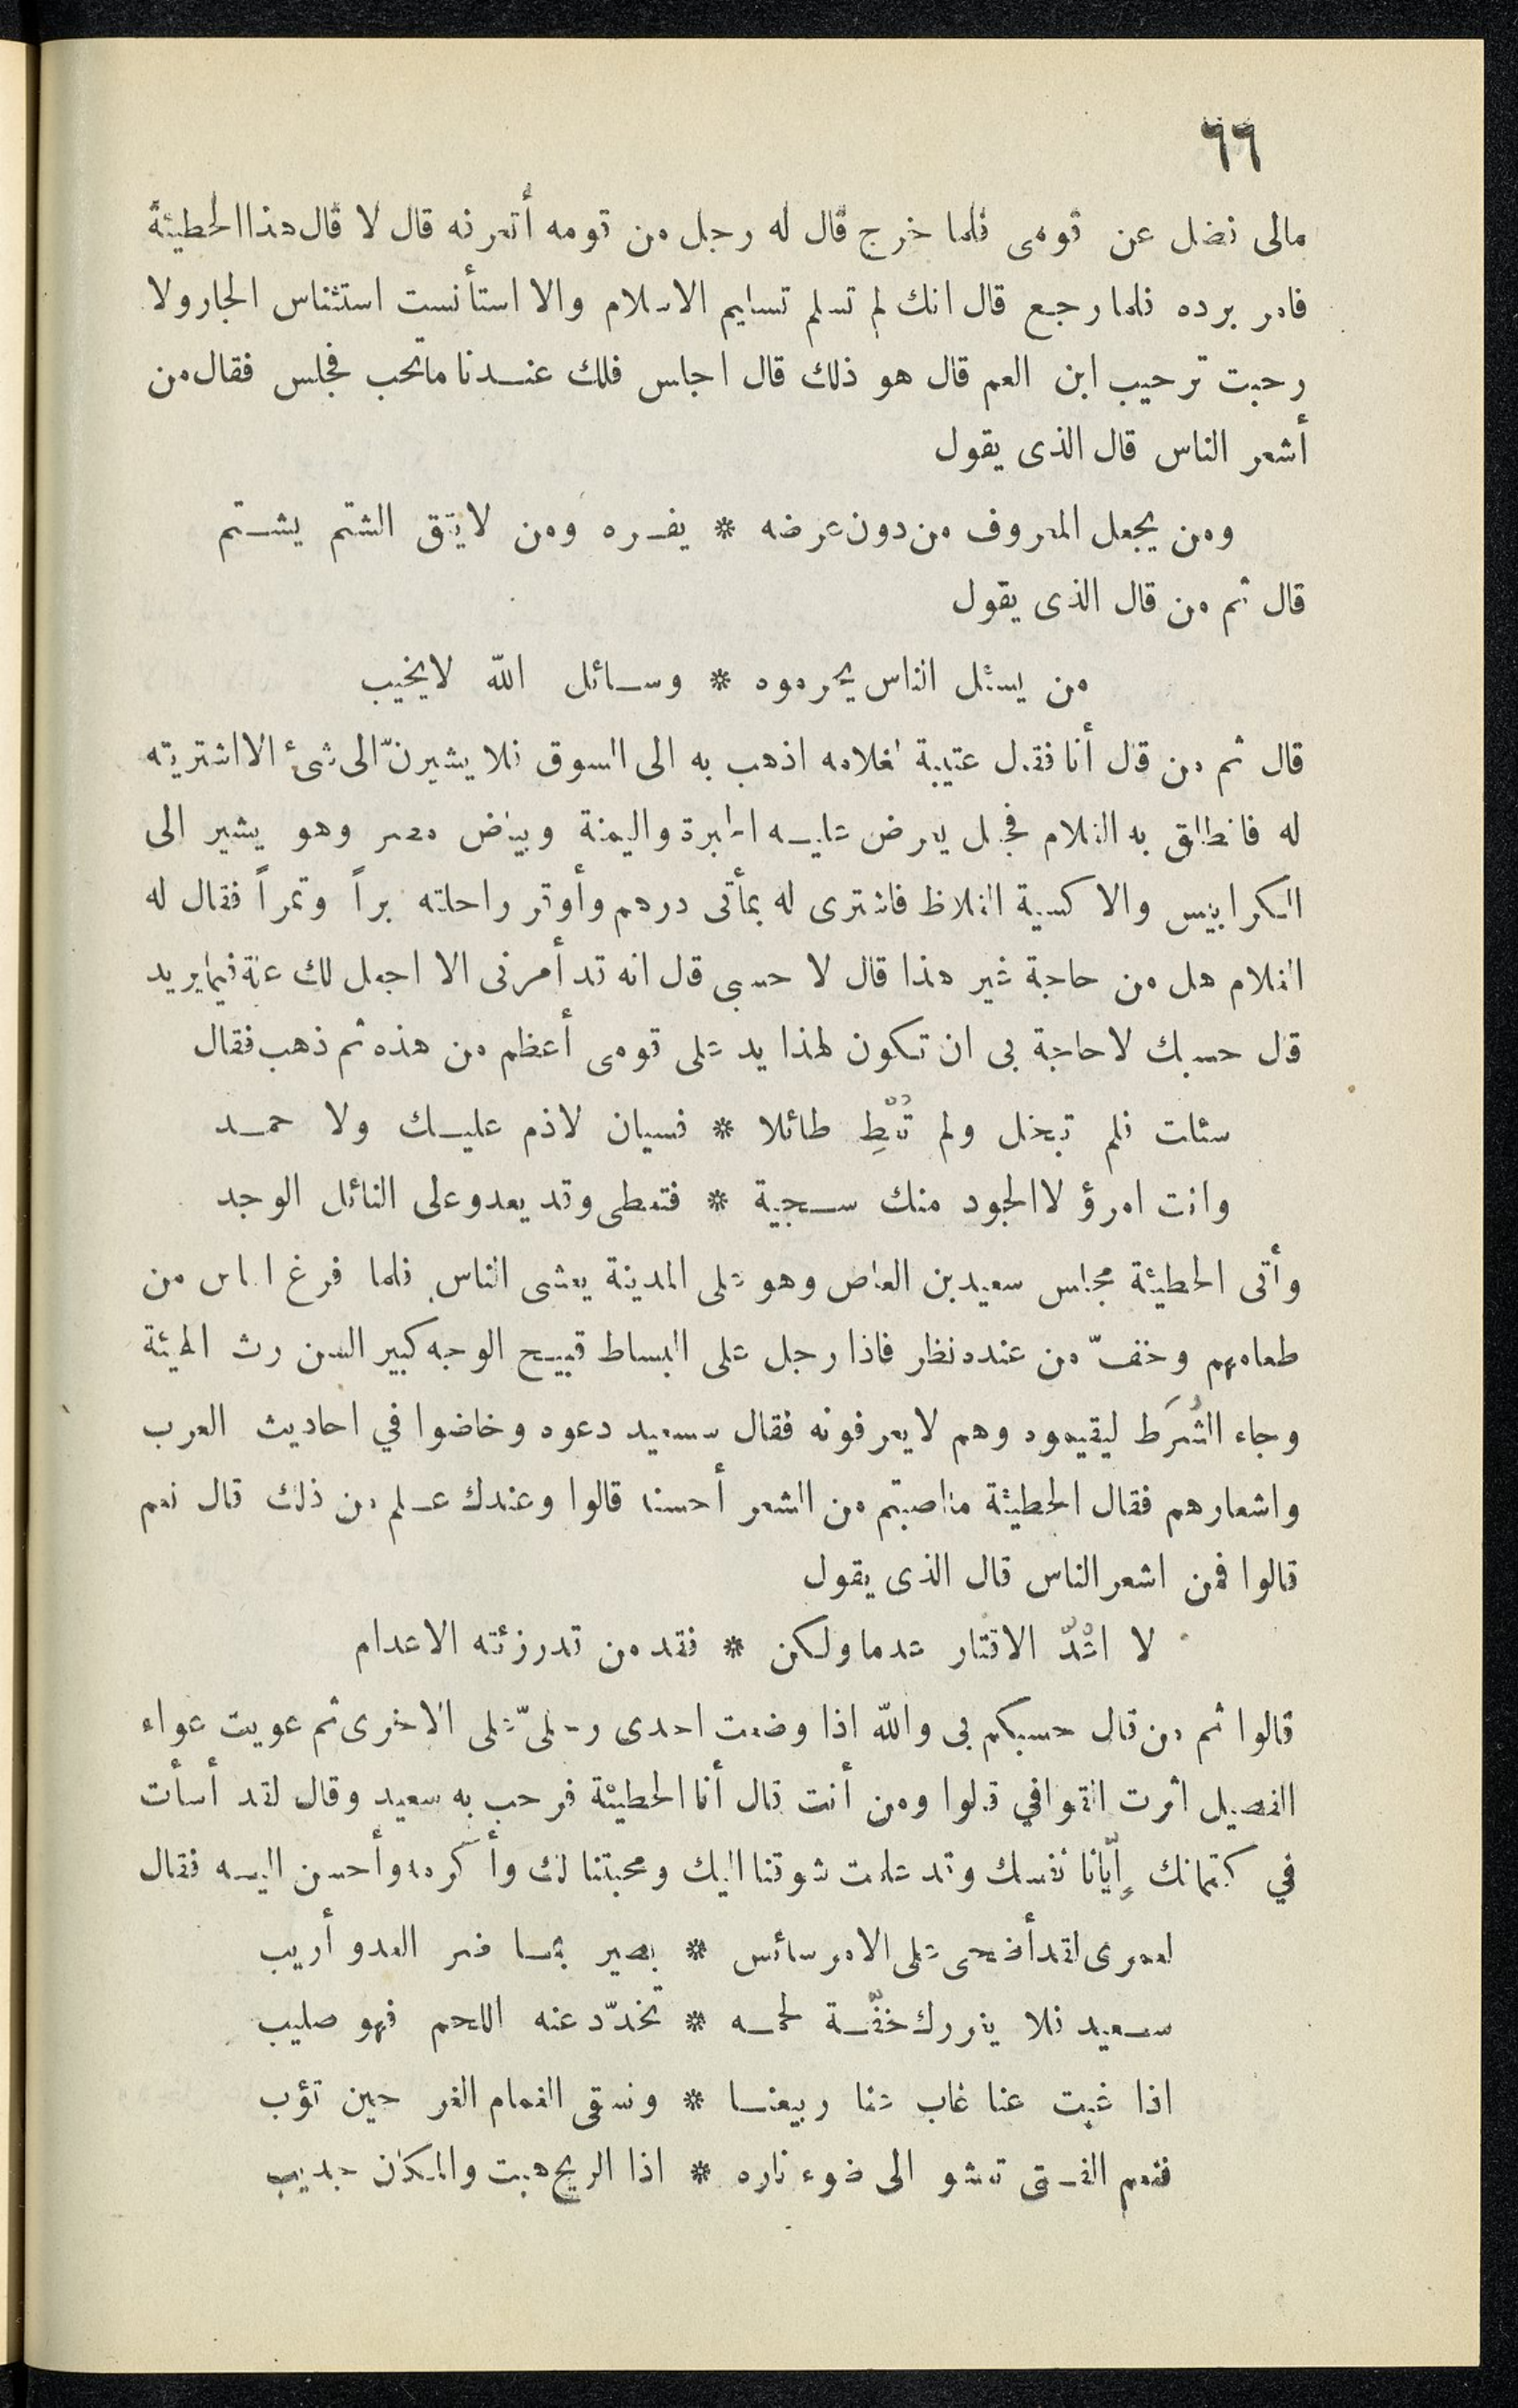 ٦٦
مالى فضل عن قومى فلما خرج قال له رجل من قومه أتعرفه قال لا قال هذا الحطيئة
فامر برده فلما رجع قال انك لم تسلم تسليم الاسلام والا استأنست استئناس الجار ولا
رحبت ترحيب ابن العم قال هو ذلك قال اجلس فلك عندنا ما تحب فجلس فقال من
أشعر الناس قال الذى يقول
ومن يجعل المعروف من دون عرضه * يفره ومن لا يتق الشتم يشتم
قال ثم من قال الذى يقول
من يسئل الناس يحرموه * وسائل الله لا يخيب
قال ثم من قال أنا فقال عتيبة لغلامه اذهب به الى السوق فلا يشيرنّ الى شئ الا اشتريته
له فانطلق به الغلام فجعل يعرض عليه الحبرة واليمنة وبياض مصر وهو يشير الى
الكرابيس والاكسية الغلاظ فاشترى له بمأتى درهم وأوقر راحلته براً وتمراً فقال له
الغلام هل من حاجة غير هذا قال لا حسبى قال انه قد أمرنى الا اجعل لك علة فيما يريد
قال حسبك لا حاجة بى ان تكون لهذا يد على قومى أعظم من هذه ثم ذهب فقال
سئلت فلم تبخل ولم تُعْطِ طائلا * فسيان لا ذم عليك ولا حمد
وانت امرؤ لا الجود منك سجية * فتعطى وقد يعدو على النائل الوجد
وأتى الحطيئة مجلس سعيد بن العاص وهو على المدينة يعشى الناس فلما فرغ الناس من
طعامهم وخفّ من عنده نظر فاذا رجل على البساط قبيح الوجه كبير السن رث الهيئة
وجاء الشُرَط ليقيموه وهم لا يعرفونه فقال سعيد دعوه وخاضوا في احاديث العرب
واشعارهم فقال الحطيئة ما اصبتم من الشعر أحسنه قالوا وعندك علم من ذلك قال نعم
قالوا فمن اشعر الناس قال الذى يقول
لا اعُدُّ الاقتار عدما ولكن * فقد من قد رزئته الاعدام
قالوا ثم من قال حسبكم بى والله اذا وضعت احدى رجلىّ على الاخرى ثم عويت عواء
الفصيل اثرت القوافي قالوا ومن أنت قال أنا الحطيئة فرحب به سعيد وقال لقد أسأت
في كتمانك إيّانا نفسك وقد علمت شوقنا اليك ومحبتنا لك وأكرمه وأحسن اليه فقال
لعمرى لقد أضحى على الامر سائس * بصير بما ضر العدو أريب
سعيد فلا يغررك خفّة لحمه * تخدّد عنه اللحم فهو صليب
اذا غبت عنا غاب عنا ربيعنا * ونسقى الغمام الغر حين تؤب
فنعم الفتى تعشو الى ضوء ناره * اذا الريح هبت والمكان جديب